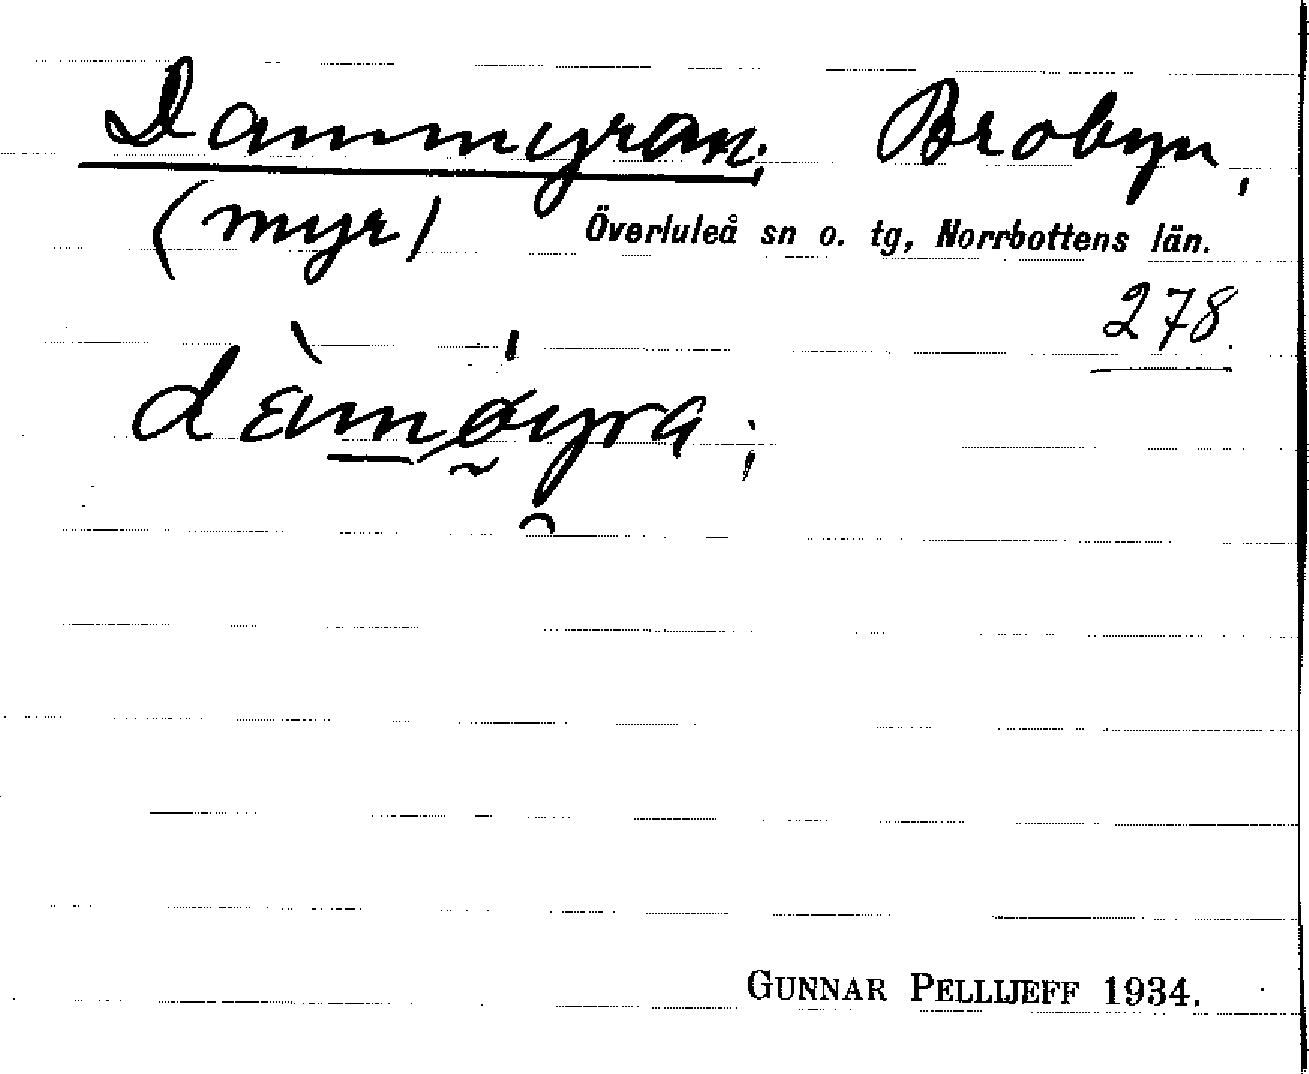 Dammyran; Brobyn,
(myr) Överluleå sn o. tg, Norrbottens län.
278.
dàmǿyra;
GUNNAR PELLIJEFF 1934.